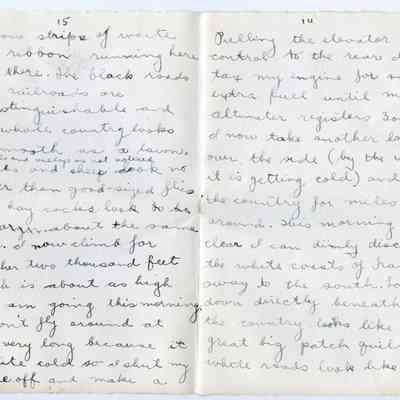 15
ous strips of white
ribbon running here
there. The black roads
railroads are
tinguishable and
whole country looks
smooth as a lawn.
and sheep look no
er than good-sized flies
hay cocks look to be
about the same
I now climb for
her two thousand feet
h is about as high
am going this morning
on't fly around at
very long because it
ite cold so I shut my
e off and make a
14
Pulling the elevator
control to the rear I
tax my engine for
extra fuel until m
altimeter registers
I now take another lo
over the side (by the w
it is getting cold) and
the country for miles
around. This morning
clear I can dimly disc
the white coasts of Fra
away to the south. Lo
down directly beneath
the country looks like
great big patch quil
whole roads look like